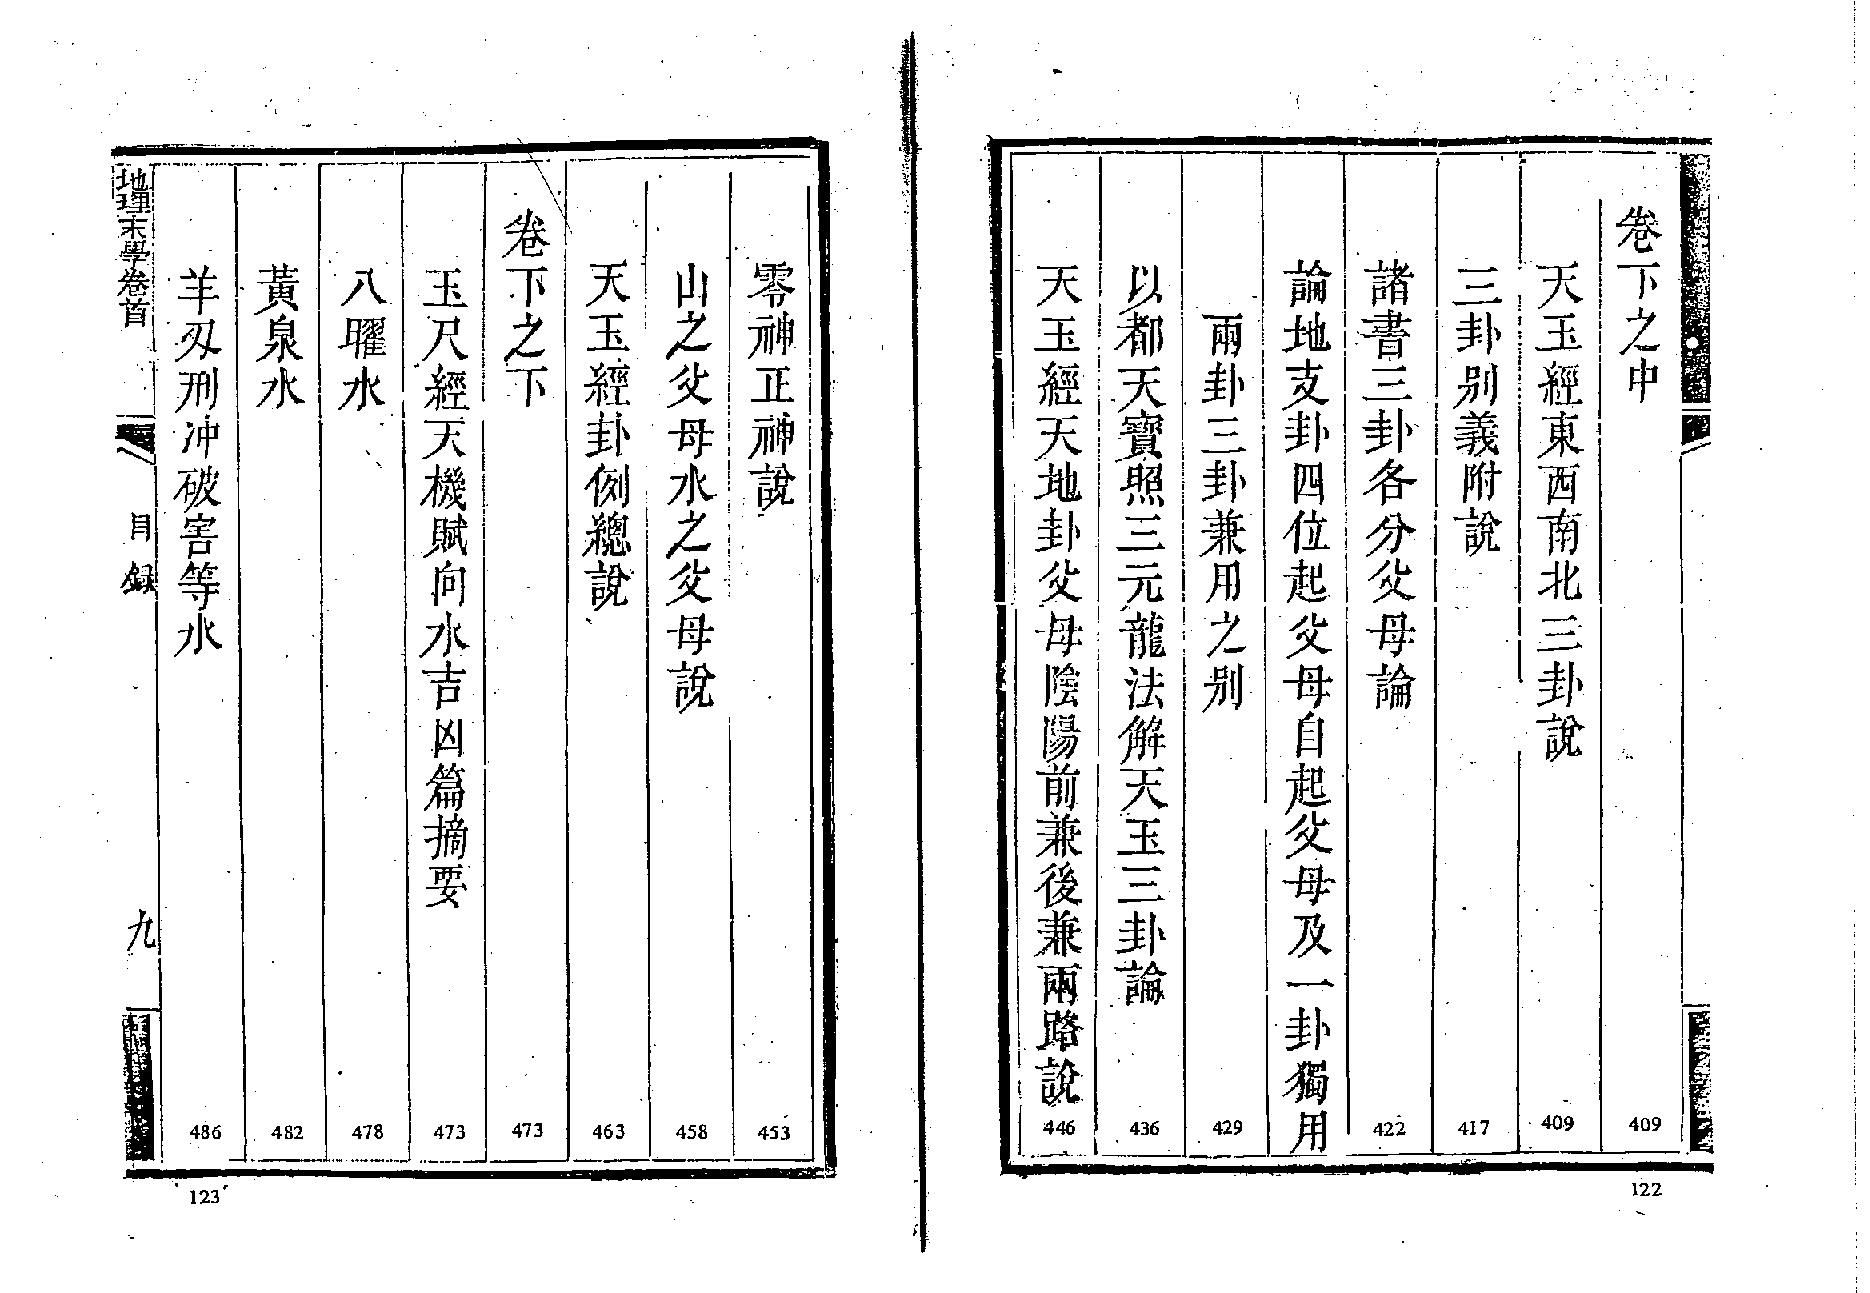 卷下之中 409
天玉經東西南北三卦說 409
三卦别義附說 417
諸書三卦各分父母論 422
論地支卦四位起父母自起父母及一卦獨用
兩卦三卦兼用之别 429
以都天寶照三元龍法解天玉三卦論 436
天玉經天地卦父母陰陽前兼後兼兩路說 446
122
零神正神說 453
山之父母水之父母說 458
天玉經卦例總說 463
卷下之下 473
玉尺經天機賦向水吉凶篇摘要 473
八曜水 478
黃泉水 482
羊刃刑冲破害等水 486
地理末學卷首 目録 九
123